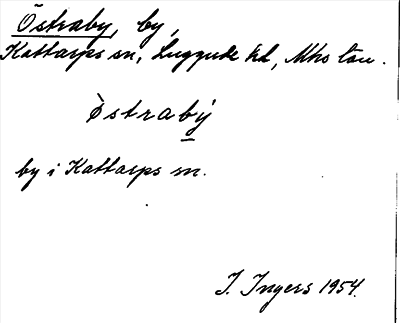 Östraby, by,
Kattarps sn, Luggude hd, Mhs län.
Òstrabý
by i Kattarps sn.
I. Ingers 1954.